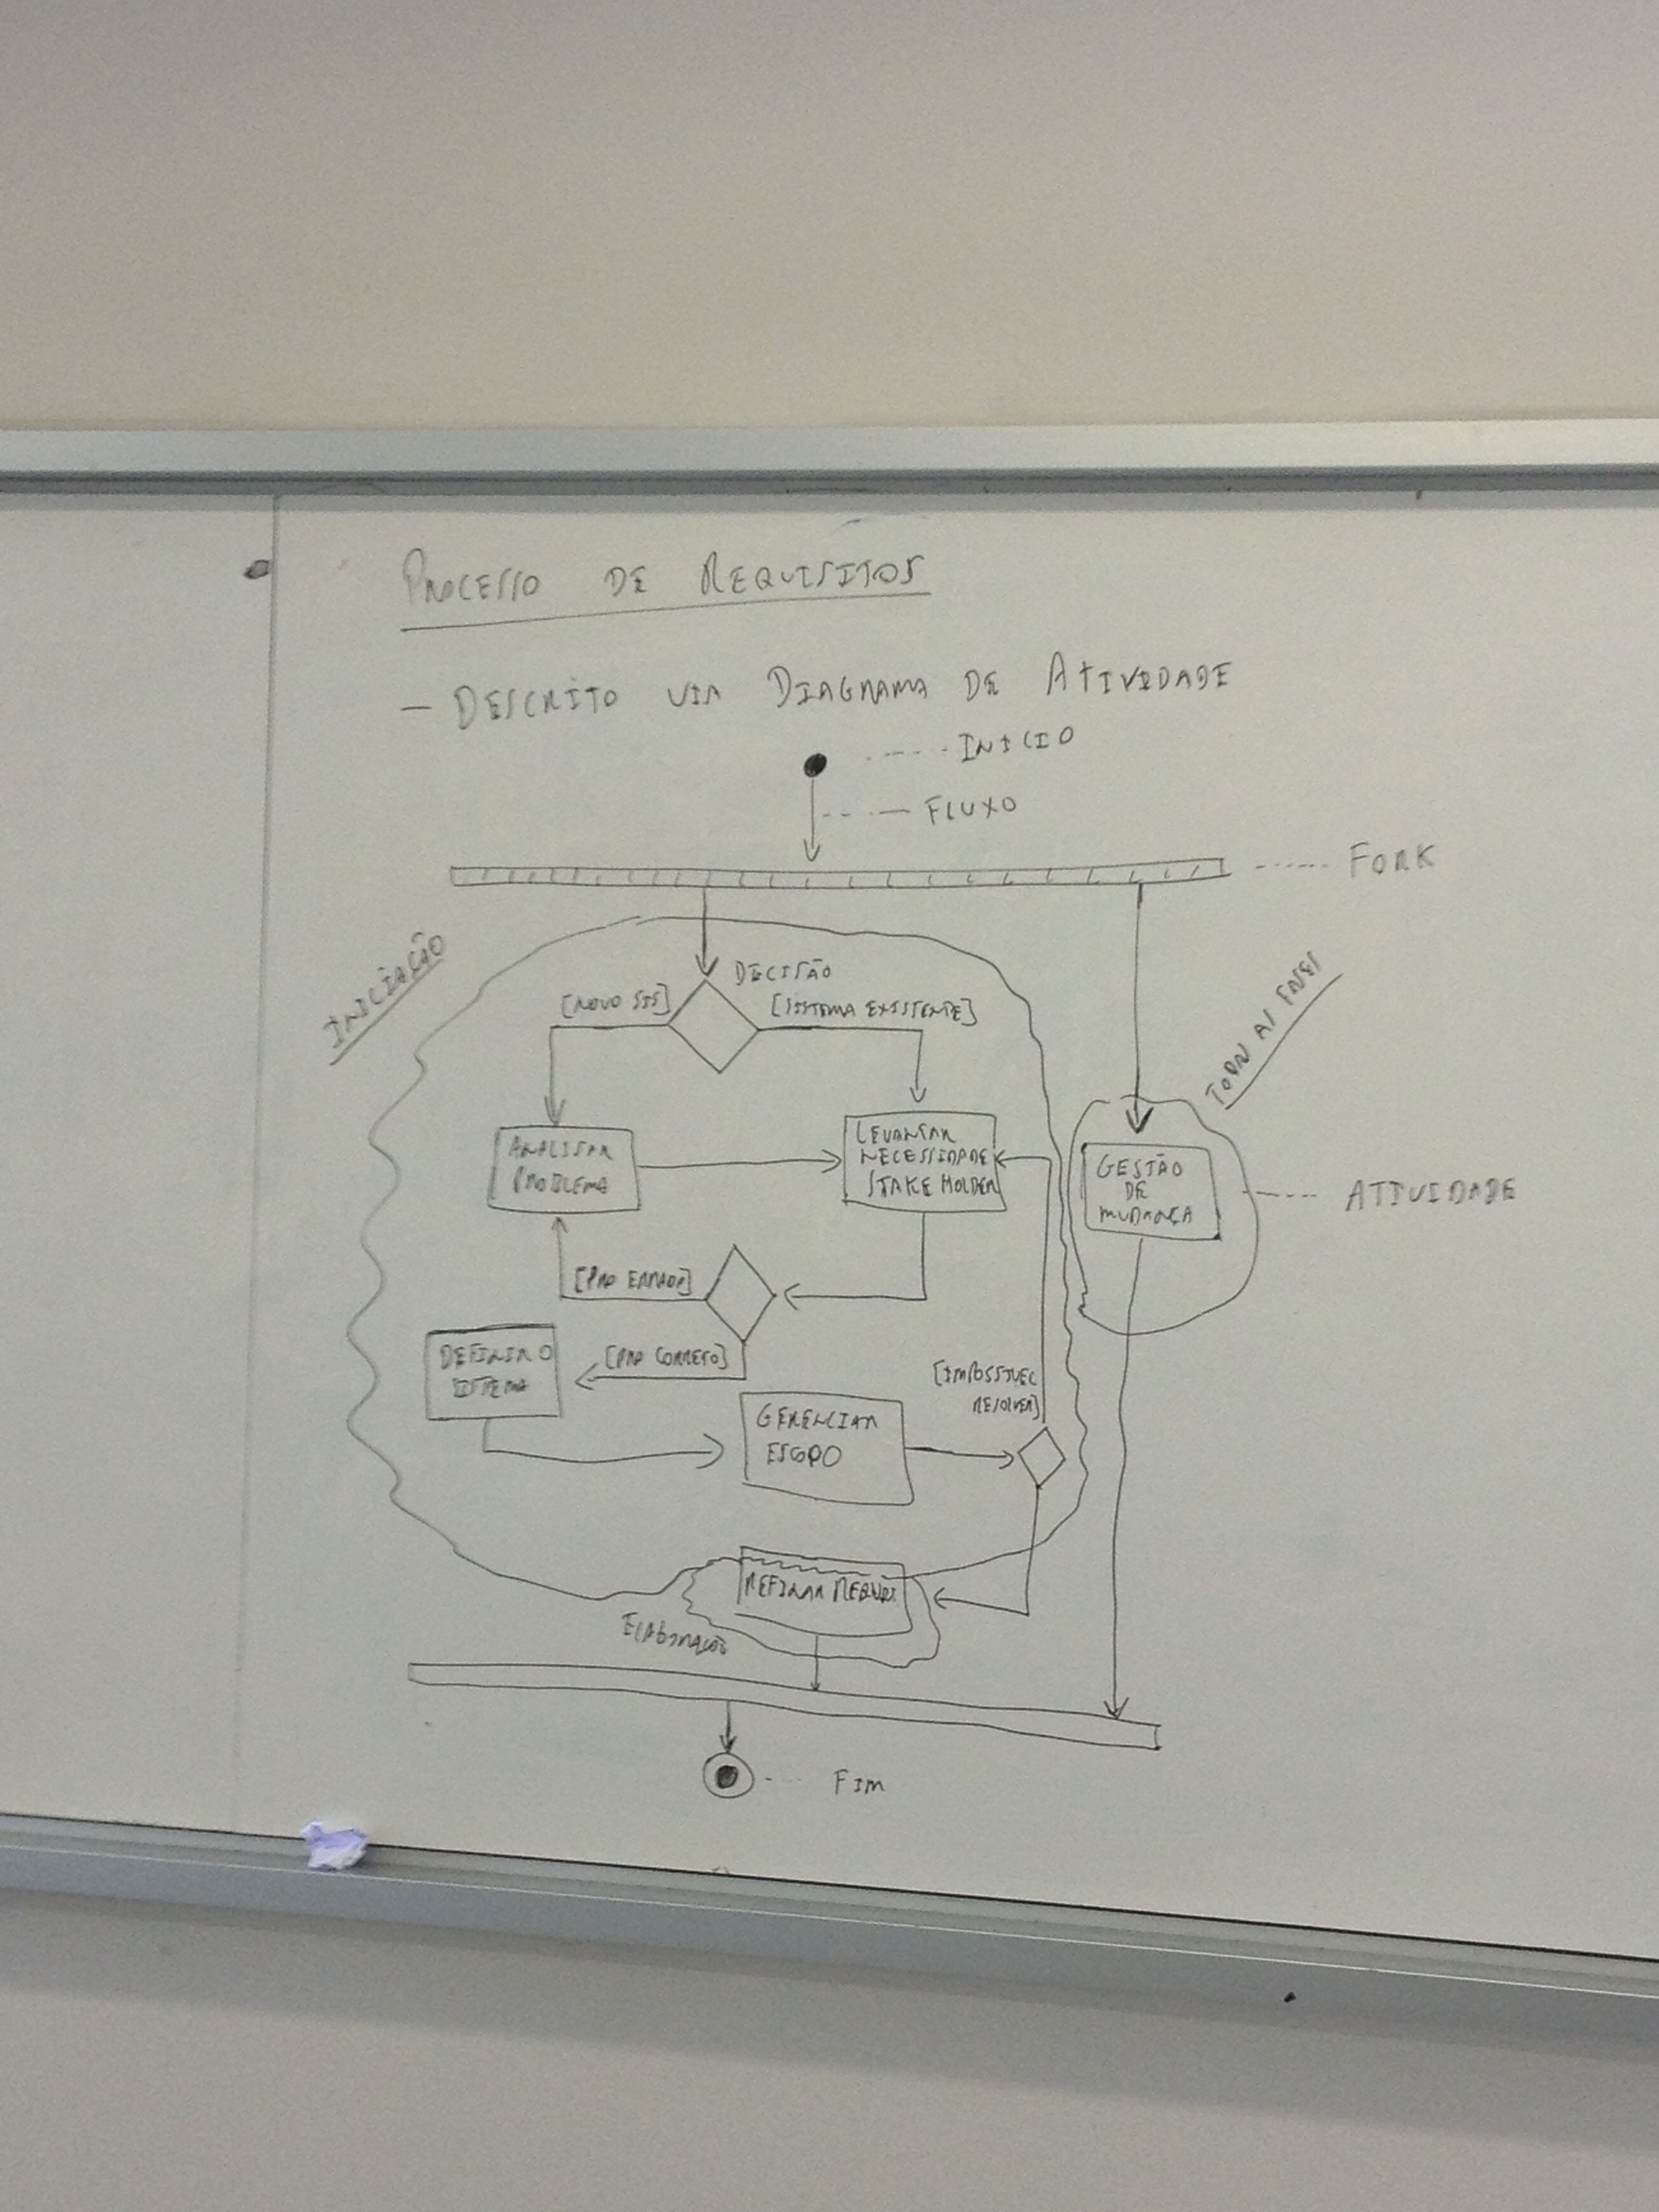 PROCESSO DE REQUISITOS
- DESCRITO VIA DIAGRAMA DE ATIVIDADE
INICIO
FLUXO
FORK
INICIAÇÃO
DECISÃO
[NOVO SIS]
[SISTEMA EXISTENTE]
TODAS AS FASES
ANALISAR
PROBLEMA
LEVANTAR
NECESSIDADE
STAKE HOLDER
GESTÃO
DE
MUDANÇA
ATIVIDADE
[PRO ERRADO]
[PRO CORRETO]
DEFINIR O
SISTEMA
[IMPOSSIVEL
RESOLVER]
GERENCIAR
ESCOPO
REFINAR
ELABORAÇÃO
FIM